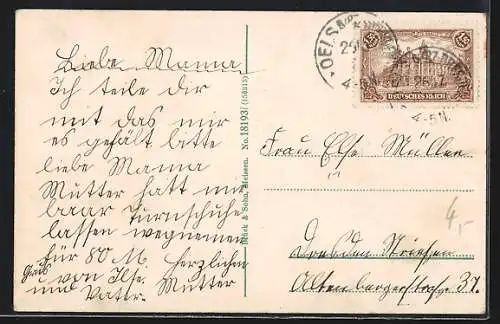 Liebe Mama
Ich teile dir
mit das mir
es gefält bitte
liebe Mama
Mutter hatt mir
baar Turnschuhe
lassen wegnemen
für 80 M. Herzlichen
Gruß von Ilse
und Vater. Mutter
Brück & Sohn, Meissen. No. 18193
OELS
4-5N.
1¼ 1¼
DEUTSCHES REICH
Frau Else Müller
Dresden Striesen
Altenbergerstraße 37.
4,-